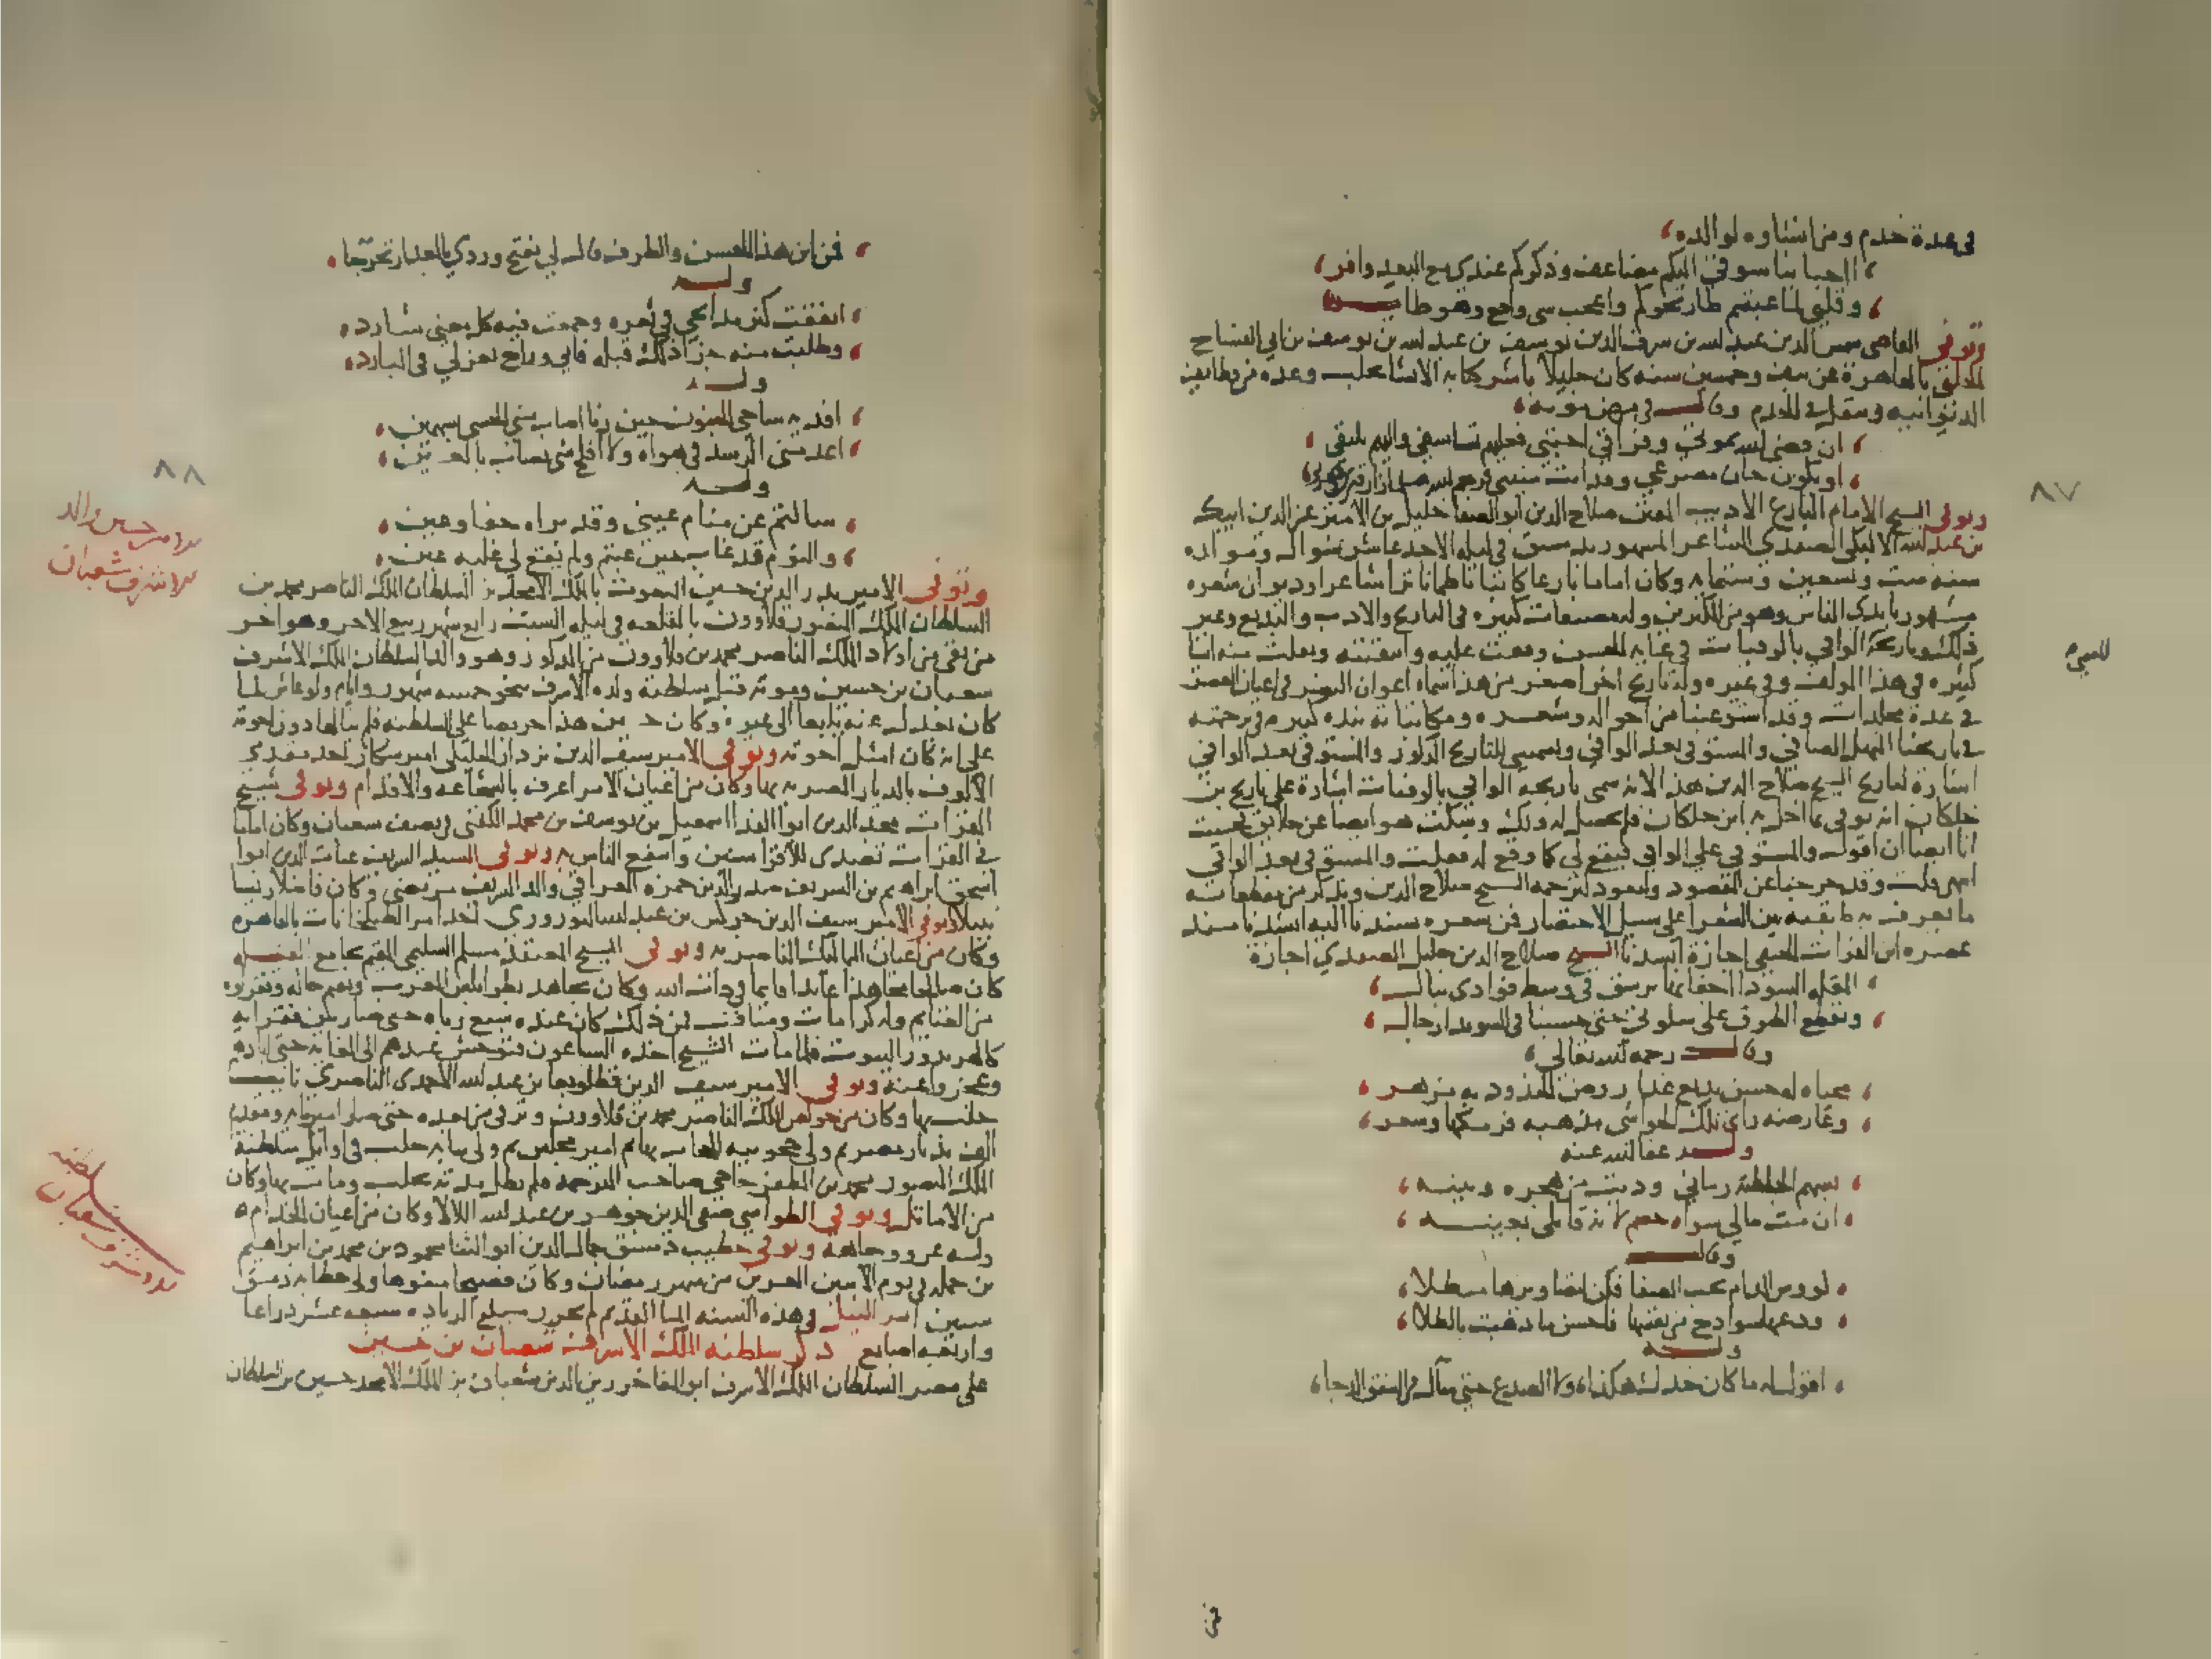 في عدة خدم ومن انشاوه لوالده
احبابنا شوقي اليكم مضاعف وذكركم عندي مع البعد وافر
وقلبي لما غبتم طار نحوكم واعجب شي واقع وهو طاير
وتوفي القاضي شمس الدين عبد الله بن شرف الدين يوسف بن عبد الله بن يوسف بن ابي السفاح
الحلبي بالقاهرة عن نيف وخمسين سنه كان جليلا باشر كتابة الانشا بحلب وعده من وظايف
الديوانيه وتنقل في الخدم وقال في مرض موته
ان قضى الله موتي وفراقي احبتي فعليهم تاسفي واليهم تلفتي
او يكون حان مصرعي ودنت منيتي فرحم الله مسلما زار قبري
وتوفي الشيخ الامام البارع الاديب المفنن صلاح الدين ابو الصفا خليل بن الامير عز الدين ايبك
بن عبد الله الالبكي الصفدي الشاعر المشهور بدمشق في ليلة الاحد عاشر شوال ومولده
سنة ست وتسعين وستمايه وكان اماما بارعا كاتبا ناظما ناثرا شاعرا وديوان شعره
مشهور بايدي الناس وهو من المكثرين وله مصنفات كثيره في التاريخ والادب والبديع وغير
ذلك وتاريخه الوافي بالوفيات في غاية الحسن وقفت عليه وانتقيته ونقلت منه اشيا
كثيره في هذا المولف وفي غيره وله تاريخ اخر اصغر من هذا سماه اعوان النصر في اعيان العصر
في عدة مجلدات وقد استوعبنا من احواله وشعره ومكاتباته نبذه كبيره في ترجمته
في تاريخنا المنهل الصافي والمستوفي بعد الوافي وتسميتي للتاريخ المذكور والمستوفي بعد الوافي
اشارة لتاريخ الشيخ صلاح الدين هذا لانه سمى تاريخه الوافي بالوفيات اشارة على تاريخ بن
خلكان انه يوفي بما اخل به ابن خلكان فلم يحصل له ذلك وسكت هو ايضا عن خلايق فخشيت
انا ايضا ان اقول والمستوفي على الوافي فيقع لي كما وقع له فقلت والمستوفي بعد الوافي
انتهى قلت وقد خرجنا عن المقصود ولنعود لترجمة الشيخ صلاح الدين ونذكر من مقطعاته
ما تعرف به طبقته بين الشعرا على سبيل الاختصار فمن شعره بسندنا اليه انشدنا مسند
عصره ابن الفرات الحنفي اجازة انشدنا الشيخ صلاح الدين خليل الصفدي اجازة
المقلة السودا اجفانها ترشق في وسط فوادي نبال
وتقطع الطرق على سلوتي حتى حسبنا في السويدا رجال
وقال رحمه الله تعالى
محياه له حسن بديع غدا روض الخدود به مزهر
وعارضه راى تلك الحواشي مذهبة فزمكها وشعر
وله عفا الله عنه
بسهم الحاظه رماني وذبت من هجره وبينه
ان مت مالي سواه خصم لانه قاتلي بعينه
وقال
وله
اقول له ما كان خدك هكذا ولا الصدغ حتى سال في الشفق الدجا
٨٧
فمن
فمن اين هذا الحسن والظرف قال لي تفتح وردي بالعذار تخرجا
وله
انفقت كنز مدايحي في ثغره وجمعت فيه كل معنى شارد
وطلبت منه جزا ذلك قبله فابى وراح تغزلي في البارد
وله
افديه ساجي الجفون حين رنا اصاب مني الحشى بسهمين
اعدمني الرشد في هواه ولا افلح شي يصاب بالعين
وله
سالتم عن منام عيني وقد براه جفا وبين
والنوم قد غاب حين غبتم ولم تقع لي عليه عين
وتوفي الامير بدر الدين حسين المنعوت بالملك الامجد بن السلطان الملك الناصر محمد بن
السلطان الملك المنصور قلاوون بالقلعه في ليلة السبت رابع شهر ربيع الاخر وهو اخر
من بقي من اولاد الملك الناصر محمد بن قلاوون من الذكور وهو والد السلطان الملك الاشرف
شعبان بن حسين وموته قبل سلطنة ولده الاشرف بنحو خمسه شهور وايام ولو عاش لما
كان يعدل عنه يلبغا الى غيره وكان حسين هذا حريصا على السلطنه فلم ينالها دون اخوته
على انه كان امثل اخوته وتوفي الامير سيف الدين بزدار الخليلي امير شكار احد مقدمي
الالوف بالديار المصريه بها وكان من اعيان الامرا عرف بالشجاعه والاقدام وتوفي شيخ
القراات مجد الدين ابو الفدا اسمعيل بن يوسف بن محمد الكفتي في نصف شعبان وكان اماما
في القراات تصدى للاقرا سنين وانتفع الناس به وتوفي السيد الشريف غياث الدين ابوا
اسحق ابراهيم بن الشريف صدر الدين حمزه العراقي والد الشريف مرتضى وكان فاضلا رئيسا
نبيلا وتوفي الامير سيف الدين جركس بن عبد الله النوروزي احد امرا الطبلخانات بالقاهره
وكان من اعيان المماليك الناصريه وتوفي الشيخ المعتقد مسلم السليمي المقيم بجامع الفيله
كان صالحا مجاهدا عابدا قايما في ذات الله وكان يجاهد بطرابلس الغرب ويقيم حاله وفقراوه
من الغنايم وله كرامات ومناقب فمن ذلك كان عنده سبع رباه حتى صار بين فقرايه
كالهر يدور البيوت فلما مات الشيخ اخذه السباعون فتوحش عندهم الى الغايه حتى ابادهم
وعجزوا عنه وتوفي الامير سيف الدين قطلوبغا بن عبد الله الاحمدي الناصري نايب
حلب بها وكان من خواص الملك الناصر محمد بن قلاوون وترقى من بعده حتى صار امير مايه ومقدم
الف بديار مصر ثم ولي حجوبية الحجاب بها ثم امير مجلس ثم ولي نيابة حلب في اوايل سلطنة
الملك المنصور محمد بن المظفر حاجي صاحب الترجمه فلم تطل مدته بحلب ومات بها وكان
من الاماثل وتوفي الطواشي صفي الدين جوهر بن عبد الله اللالا وكان من اعيان الخدام
وله عز ووجاهه وتوفي خطيب دمشق جمال الدين ابو الثنا محمود بن محمد بن ابراهيم
بن جمله في يوم الاثنين العشرين من شهر رمضان وكان فصيحا مفوها ولي خطابة دمشق
سنين امر النيل في هذه السنه الما القديم لم يحرر مبلغ الزياده سبعه عشر ذراعا
واربعة اصابع ذكر سلطنه الملك الاشرف شعبان بن حسين
على مصر السلطان الملك الاشرف ابو المفاخر زين الدين شعبان بن الملك الامجد حسين بن السلطان
٨٨
الامير حسين والد
الاشرف شعبان
سلطنه
الاشرف شعبان